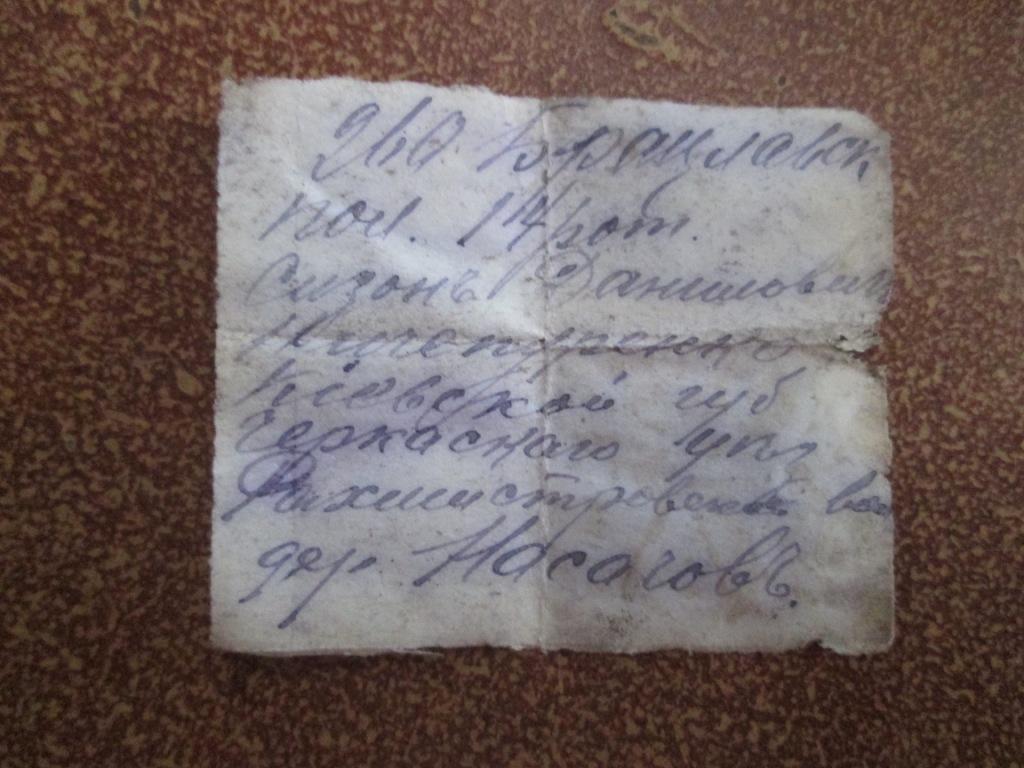 260 Брацлавск
пол. 14 рот.
Сизонъ Данилович
Кіевской губ
Черкаскаго уез
Рахмистровской вол
дер. Насачовъ.